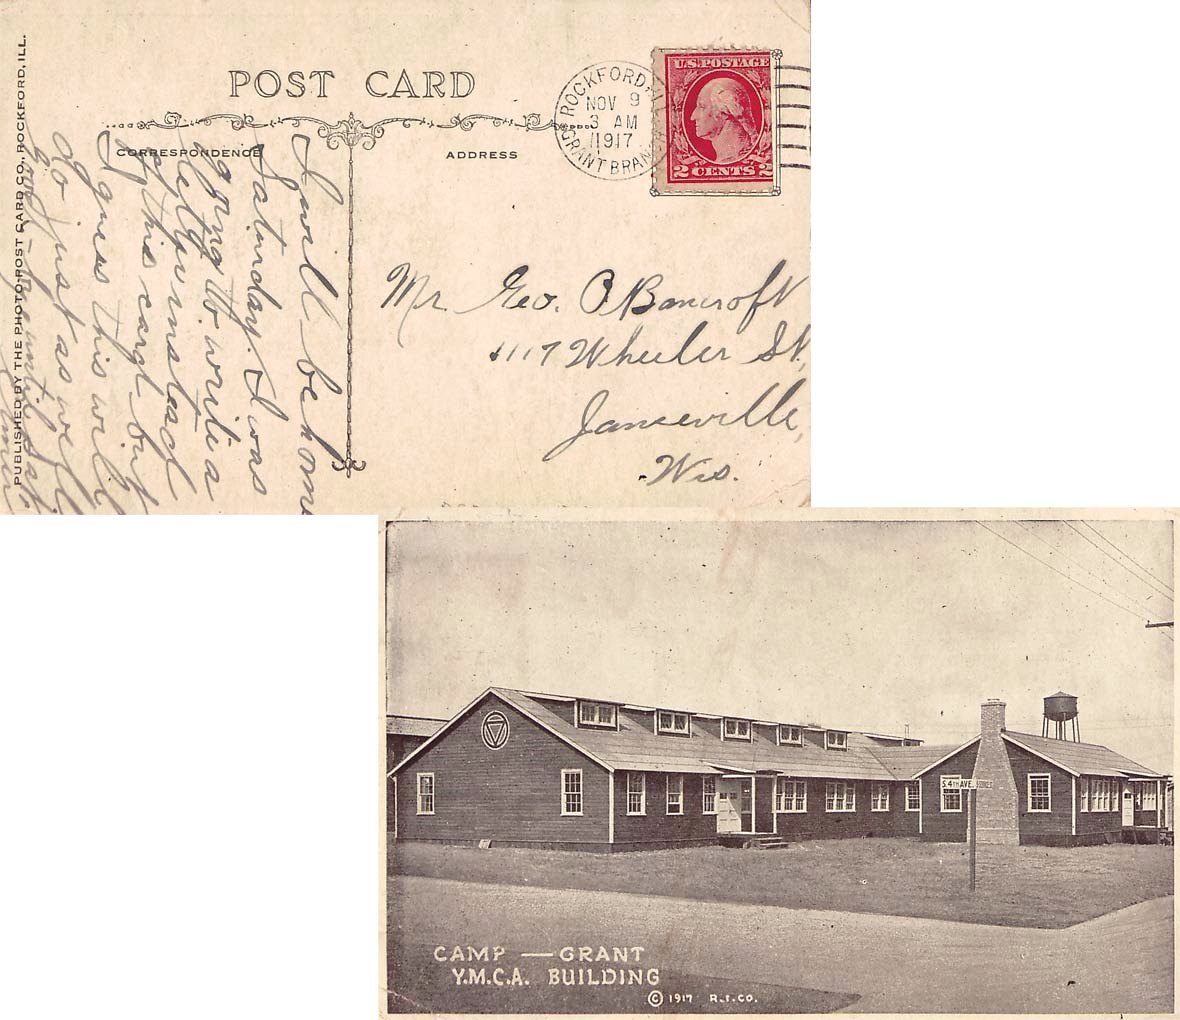 POST CARD
CORRESPONDENCE
ADDRESS
PUBLISHED BY THE PHOTO POST CARD CO., ROCKFORD, ILL.
ROCKFORD, ILL.
NOV 9
3 AM
1917
GRANT BRANCH
U.S. POSTAGE
2 CENTS 2
I will be home
Saturday. I was
going to write a
letter instead
of this card but
I guess this will
do just as well
good-by until Sat.
Mr. Geo. Bancroft
1117 Wheeler St.,
Janesville,
Wis.
S. 4TH AVE.
CAMP — GRANT
Y.M.C.A. BUILDING
© 1917 R.I.CO.